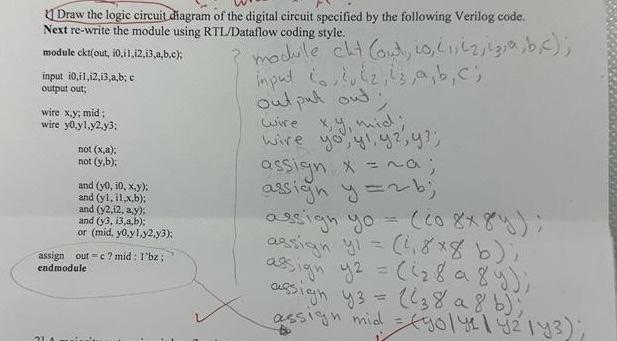 1) Draw the logic circuit diagram of the digital circuit specified by the following Verilog code.
Next re-write the module using RTL/Dataflow coding style.
module ckt(out, i0,i1,i2,i3,a,b,c);
input i0,i1,i2,i3,a,b; c
output out;
wire x,y; mid ;
wire y0,y1,y2,y3;
not (x,a);
not (y,b);
and (y0, i0, x,y);
and (y1, i1,x,b);
and (y2,i2, a,y);
and (y3, i3,a,b);
or (mid, y0,y1,y2,y3);
assign out = c ? mid : 1'bz ;
endmodule
module ckt (out, i0, i1, i2, i3, a, b, c);
input i0, i1, i2, i3, a, b, c;
output out;
wire x, y, mid;
wire y0, y1, y2, y3;
assign x = ~a;
assign y = ~b;
assign y0 = (i0 & x & y);
assign y1 = (i1 & x & b);
assign y2 = (i2 & a & y);
assign y3 = (i3 & a & b);
assign mid = (y0 | y1 | y2 | y3);